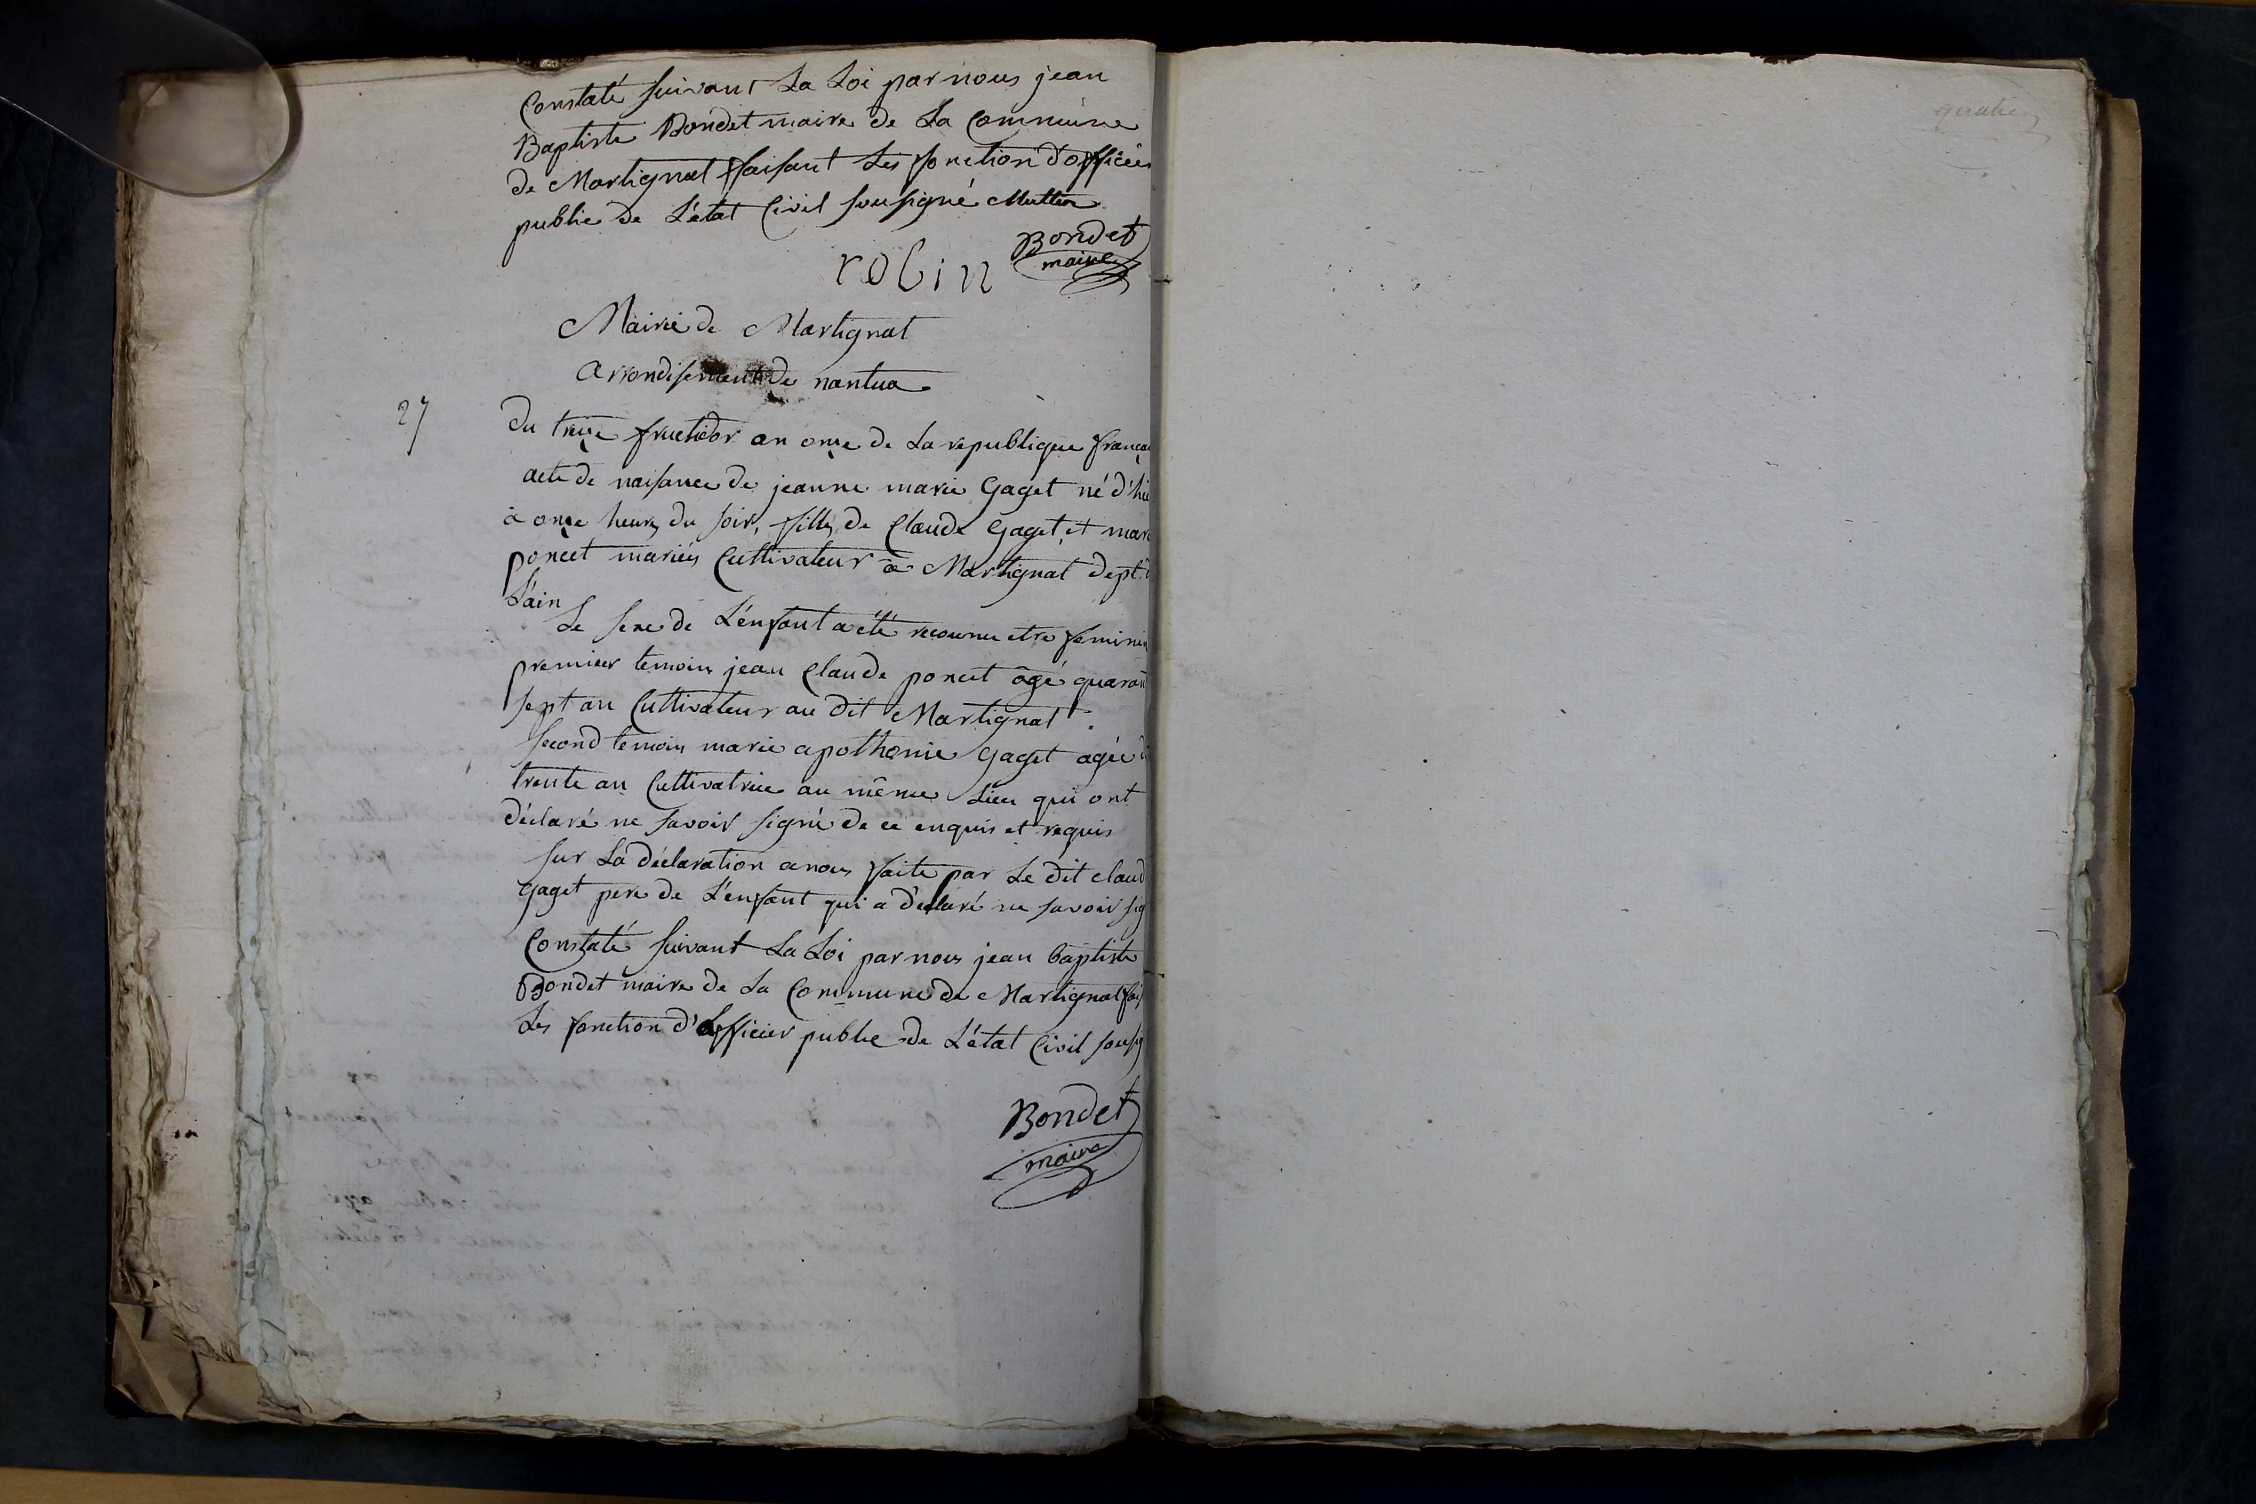 Constaté suivant La Loi par nous jean
Baptiste Bondet maire de La Commune
de Martignat faisant Les fonction d'officier
public de L'état Civil sousigné Muttin
robin Bondet
maire
Mairie de Martignat
arrondisement de nantua
27
Du treize fructidor an onze de La republique françai
acte de naisance de jeanne marie Gaget né d'hie
à onze heures du soir, fille de Claude Gaget, et mari
poncet mariés Cultivateur à Martignat dept. d
L'ain
Le sexe de L'enfant a été reconnu etre feminin
premier temoin jean Claude poncet âgé quarant
sept an Cultivateur au dit Martignat.
second temoin marie apolhonie Gaget agée d
trente an Cultivatrice au même Lieu qui ont
déclaré ne savoir signé de ce enquis et requis
sur La déclaration a nous faite par Le dit claud
Gaget pere de L'enfant qui a déclaré ne savoir sig
Constaté suivant La Loi par nous jean baptiste
Bondet maire de La Commune de Martignat fais
Les fonction d'officier public de L'état Civil sousig
Bondet
maire